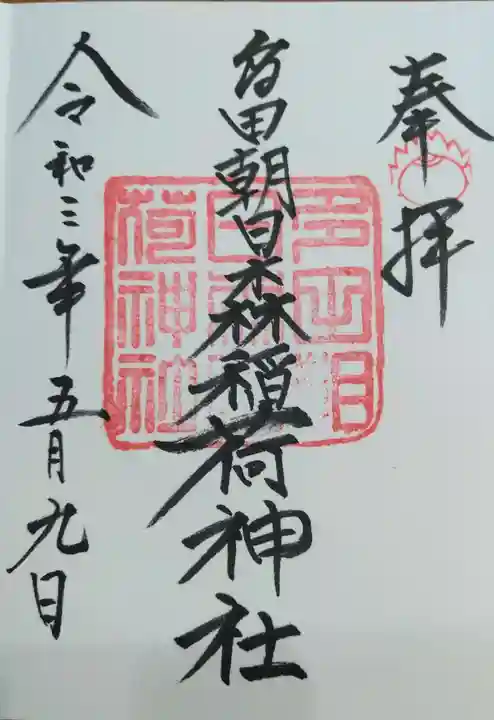 奉拝
多田朝日森稲荷神社
令和三年五月九日
多田朝
日森稲
荷神社